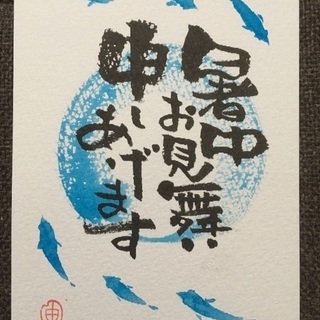 暑中
お見舞
申し
あげます